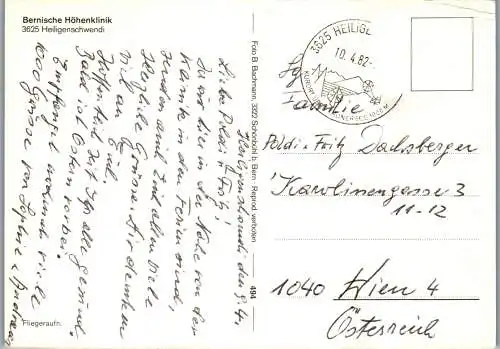 Bernische Höhenklinik
3625 Heiligenschwendi
Heiligenschwendi den 9.4.
Liebe Poldi u Fritz!
Da wir hier in der Nähe von der
Klinik in den Ferien sind,
senden auch Euch allen liebe
herzliche Grüsse. Wir denken
viel an Euch.
Hoffentlich seit Ihr alle gesund
Bald ist Ostern vorbei.
Empfanget nochmals viele
1000 Grüsse von
Fliegeraufn.
494
Foto B. Bachmann, 3322 Schönbühl b. Bern - Reprod. verboten
3625 HEILIGE
10.4.82-
Familie
Poldi + Fritz Dachsberger
Karolinengasse 3
11-12
1040 Wien 4
Österreich